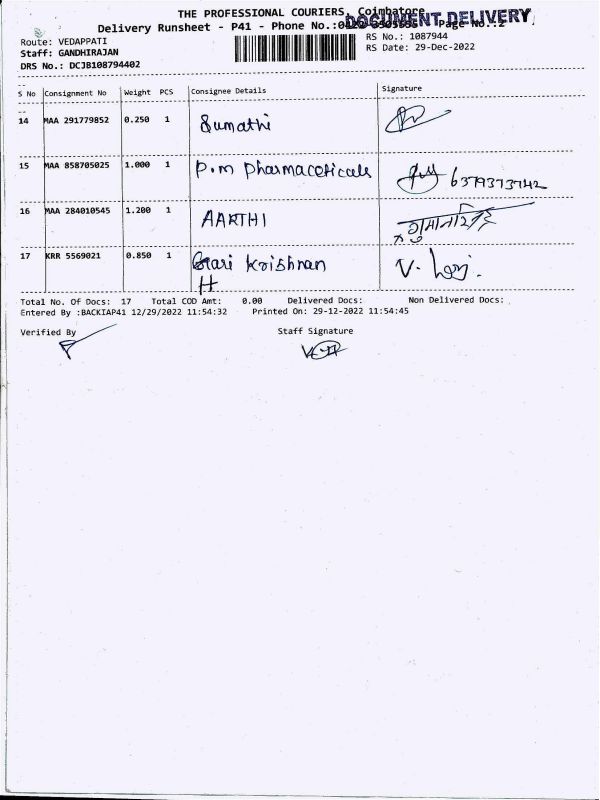 THE PROFESSIONAL COURIERS, Coimbatore
DOCUMENT DELIVERY
Delivery Runsheet - P41 - Phone No.: Page No.:2
Route: VEDAPPATI
RS No.: 1087944
Staff: GANDHIRAJAN
RS Date: 29-Dec-2022
DRS No.: DCJB108794402
S No Consignment No Weight PCS Consignee Details Signature
14 MAA 291779852 0.250 1 Sumathi
15 MAA 858705025 1.000 1 P.m Pharmaceticals 6379373742
16 MAA 284010545 1.200 1 AARTHI
17 KRR 5569021 0.850 1 Hari Krishnan V. Hari.
H
Total No. Of Docs: 17 Total COD Amt: 0.00 Delivered Docs: Non Delivered Docs:
Entered By :BACKIAP41 12/29/2022 11:54:32 Printed On: 29-12-2022 11:54:45
Verified By Staff Signature